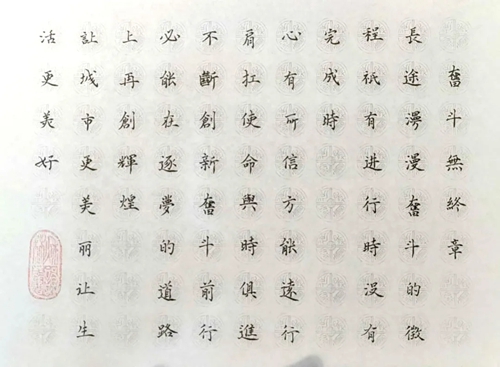 奮斗無終章
長途漫漫奮斗的徵
程祇有进行時没有
完成時
心有所信方能遠行
肩扛使命與時俱進
不斷創新奮斗前行
必能在逐夢的道路
上再創輝煌
让城市更美丽让生
活更美好